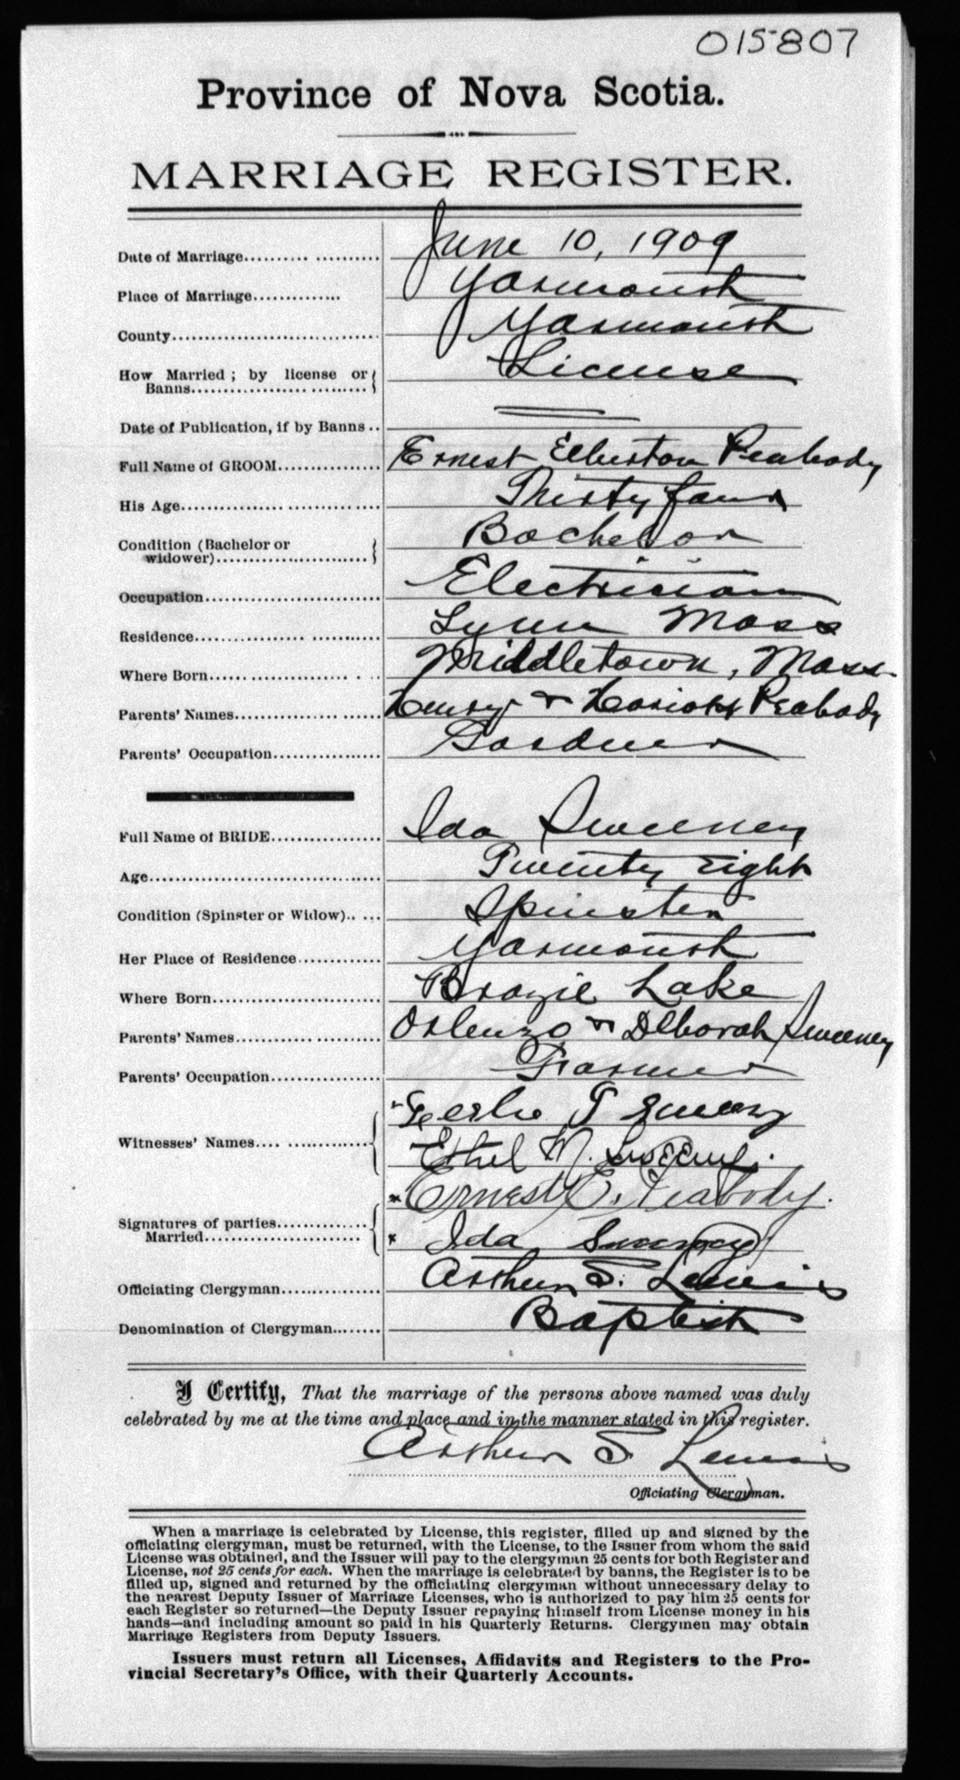 015807
Province of Nova Scotia.
MARRIAGE REGISTER.
Date of Marriage.......... .......... June 10, 1909
Place of Marriage.............. Yarmouth
County................................ Yarmouth
How Married ; by license or
Banns..................... .......... License
Date of Publication, if by Banns ..
Full Name of GROOM................ Ernest Elberton Peabody
His Age................ ............... Thirty four
Condition (Bachelor or
widower)........................ Bachelor
Occupation........................... Electrician
Residence................. ............ Lynn Mass
Where Born...... ................ . . Middletown, Mass.
Parents' Names................. ..... Henry & Harriett Peabody
Parents' Occupation................. Gardner
Full Name of BRIDE................ Ida Sweeney
Age.................................... Twenty eight
Condition (Spinster or Widow).. ... Spinster
Her Place of Residence............. Yarmouth
Where Born.......... ............... Brazil Lake
Parents' Names............ ........... Orlenzo & Deborah Sweeney
Parents' Occupation................. Farmer
Witnesses' Names.... ............... Leslie T Sweeny
Ethel M. Sweeny.
Signatures of parties............... × Ernest E. Peabody.
Married........................ × Ida Sweeney
Officiating Clergyman............... Arthur S. Lewis
Denomination of Clergyman........ Baptist
I Certify, That the marriage of the persons above named was duly
celebrated by me at the time and place and in the manner stated in this register.
Arthur S Lewis
Officiating Clergyman.
When a marriage is celebrated by License, this register, filled up and signed by the
officiating clergyman, must be returned, with the License, to the Issuer from whom the said
License was obtained, and the Issuer will pay to the clergyman 25 cents for both Register and
License, not 25 cents for each. When the marriage is celebrated by banns, the Register is to be
filled up, signed and returned by the officiating clergyman without unnecessary delay to
the nearest Deputy Issuer of Marriage Licenses, who is authorized to pay him 25 cents for
each Register so returned—the Deputy Issuer repaying himself from License money in his
hands—and including amount so paid in his Quarterly Returns. Clergymen may obtain
Marriage Registers from Deputy Issuers.
Issuers must return all Licenses, Affidavits and Registers to the Pro-
vincial Secretary's Office, with their Quarterly Accounts.